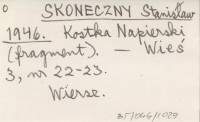 o SKONECZNY Stanisław
1946. Kostka Napierski
(fragment). — Wieś
3, nr 22-23.
Wiersz.
35/066/1029